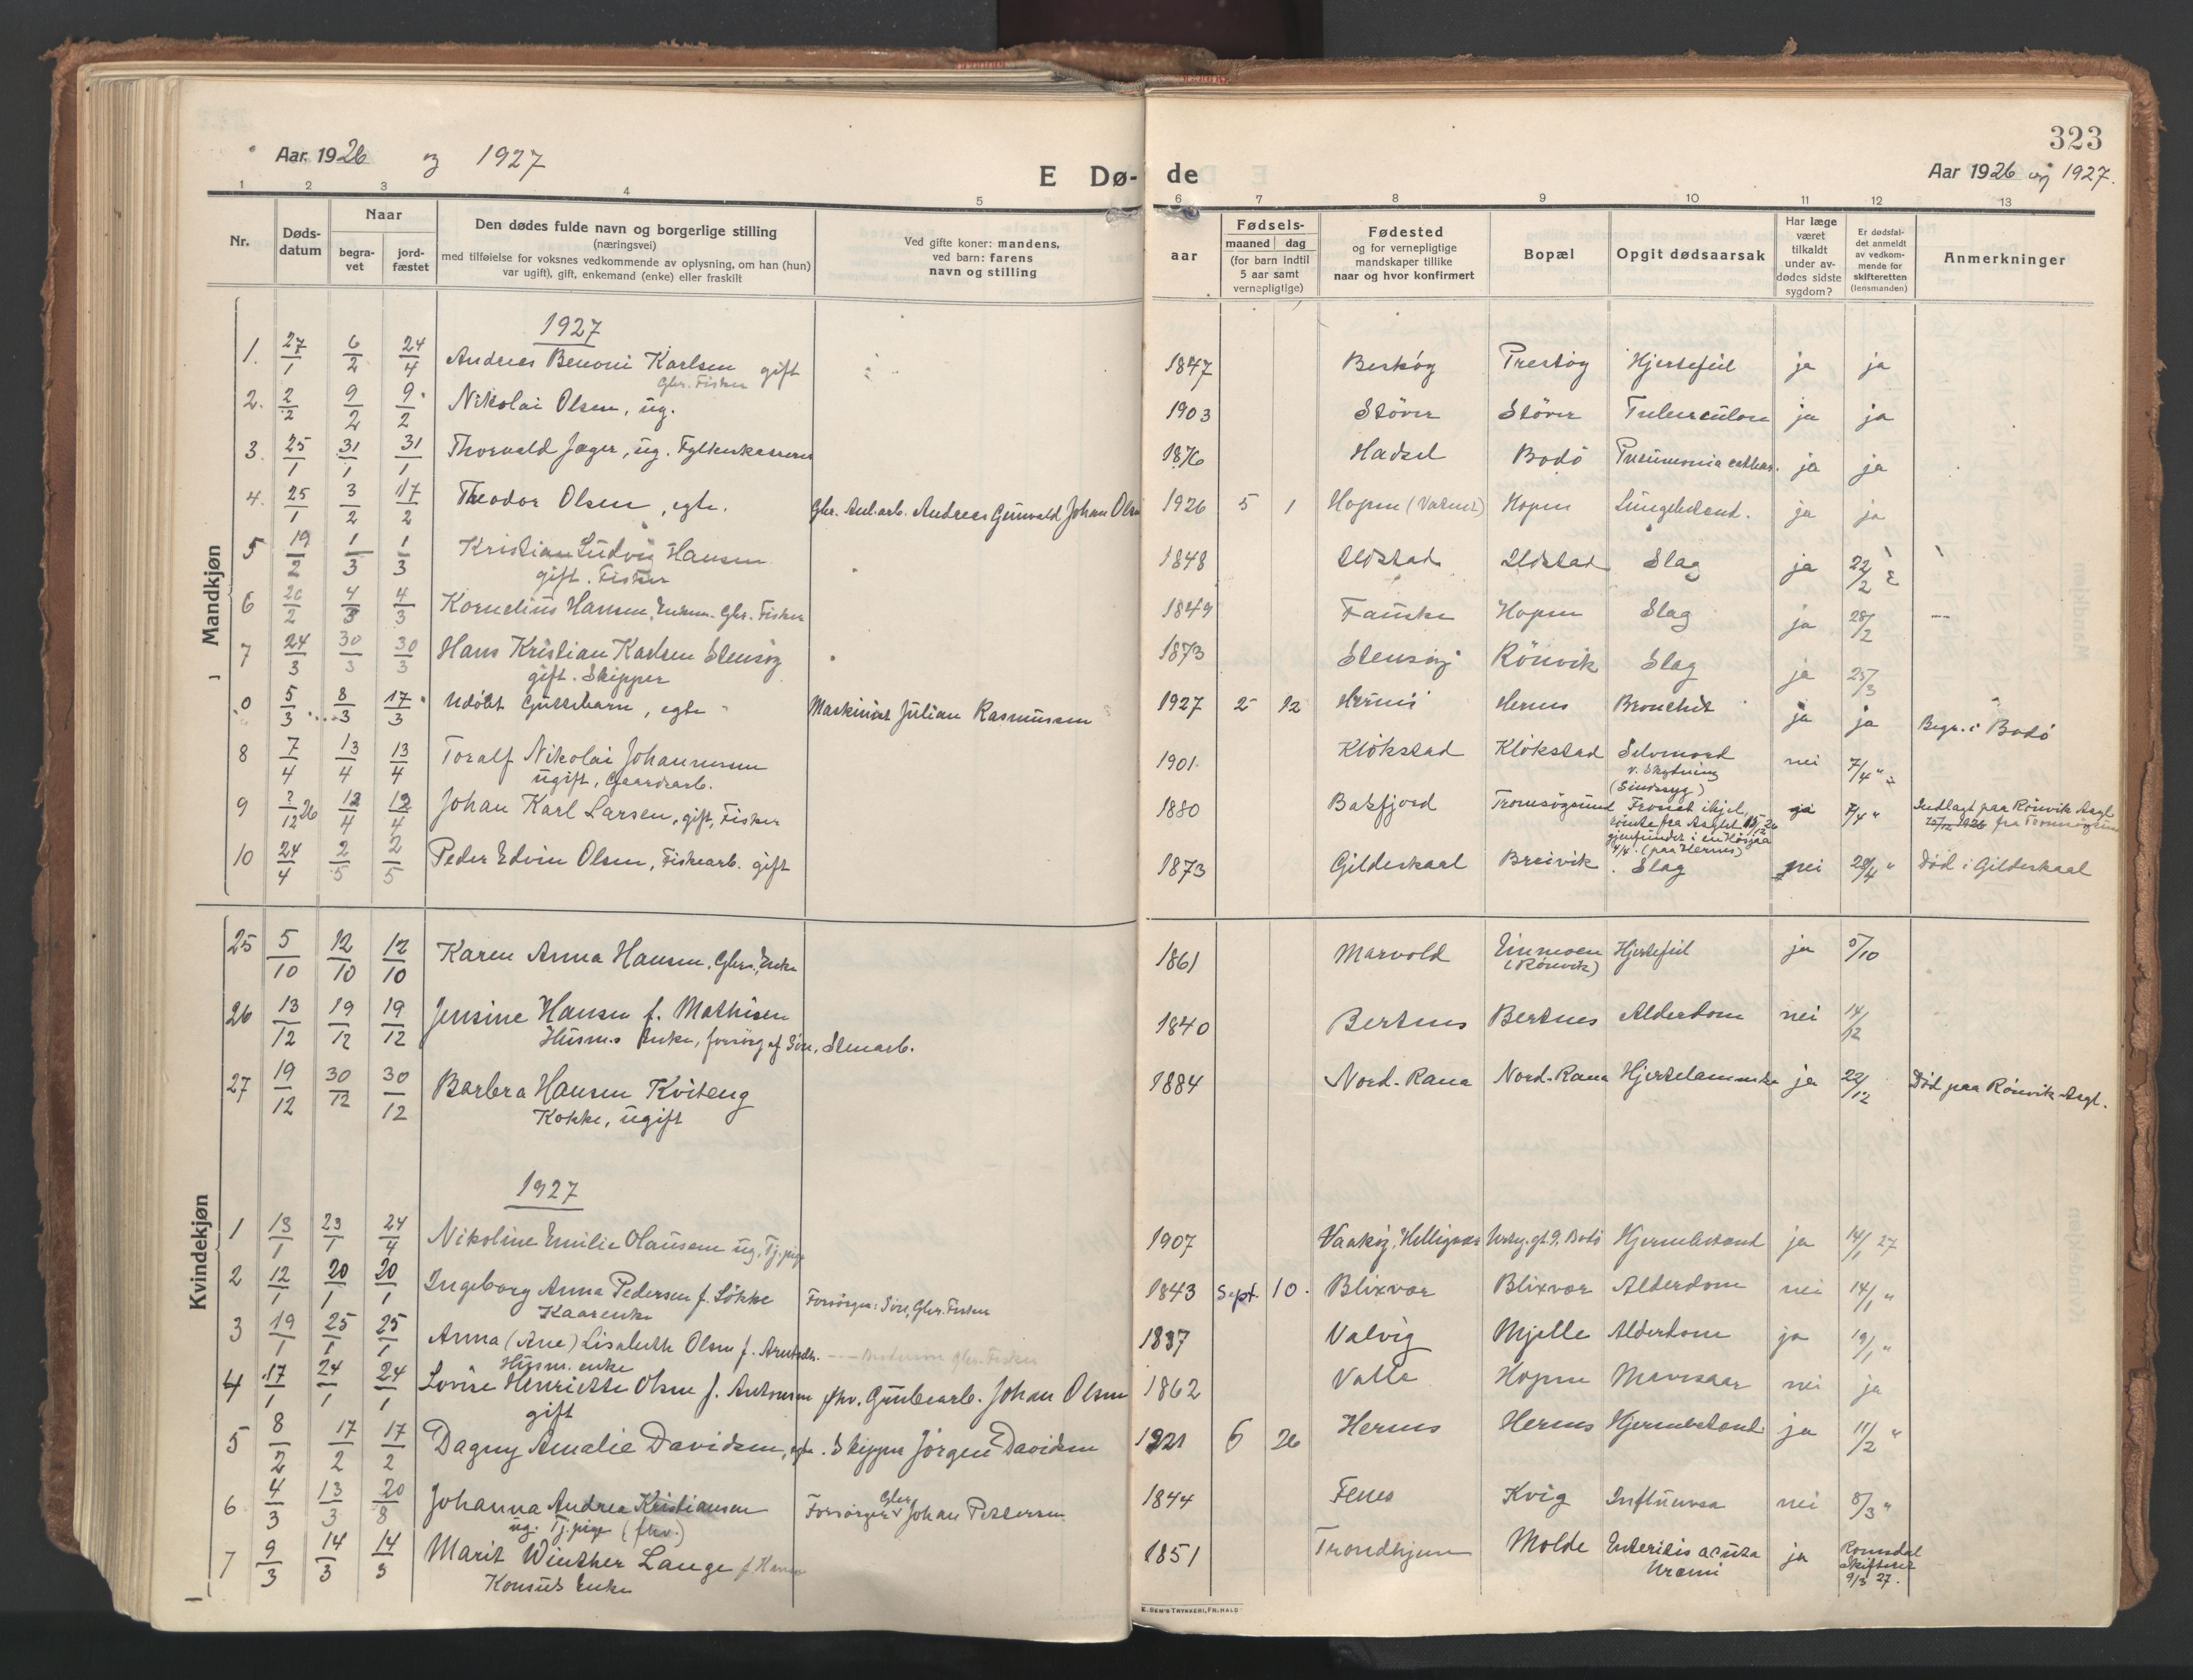 323
Aar 1926 og 1927
E Dø-
de
Aar 1926 og 1927.
1 2 3 4 5 6 7 8 9 10 11 12 13
Nr.
Døds-
datum
Naar
begra-
vet
jord-
fæstet
Den dødes fulde navn og borgerlige stilling
(næringsvei)
med tilføielse for voksnes vedkommende av oplysning, om han (hun)
var ugift), gift, enkemand (enke) eller fraskilt
Ved gifte koner: mandens,
ved barn: farens
navn og stilling
aar
Fødsels-
maaned dag
(for barn indtil
5 aar samt
vernepligtige)
Fødested
og for vernepligtige
mandskaper tillike
naar og hvor konfirmert
Bopæl
Opgit dødsaarsak
Har læge
været
tilkaldt
under av-
dødes sidste
sygdom?
Er dødsfal-
det anmeldt
av vedkom-
mende for
skifteretten
(lensmanden)
Anmerkninger
Mandkjøn
1927
1. 27/1 6/2 24/4 Andreas Benoni Karlsen gift 1847 Prestøg Hjertefeil ja ja
Fisker
2. 2/2 9/2 9/2 Nikolai Olsen, ug. 1903 Støver Støver ja ja
3. 25/1 31/1 31/1 Thorvald Jager, ug. 1876 Hadsel Bodø Pneumonia ja ja
4. 25/1 3/2 17/2 Theodor Olsen, egte. Andreas Gunvald Johan 1926 5 1 Hopen Hopen ja ja
5 19/2 1/3 1/3 Kristian Ludvig Hansen 1848 Ildstad Slag ja 22/2
gift. Fisker
6 20/2 4/3 4/3 Kornelius Hansen, Enkem. Fisker 1849 Fauske Hopen Slag ja 28/2 —
7 24/3 30/3 30/3 Hans Kristian Karlsen Stensøg 1873 Stensøg Rønvik Slag ja 25/3
gift. Skipper
0 5/3 8/3 17/3 Udøbt Guttebarn, egte Maskinist Julian Rasmussen 1927 2 12 Hernes Hernes Bronchit ja ja Begr. i Bodø
8 7/4 13/4 13/4 Toralf Nikolai Johannessen 1901 Kløkstad Kløkstad Selvmord nei 7/4 "
ugift, Gaardsarb. v. Skydning
(Sindssyg)
9 ?/12 26 12/4 12/4 Johan Karl Larsen, gift, Fisker 1880 Tromsøsund Frosset ihjel, ja 7/4 " Indlagt paa Rønvik Asyl
rømte fra Asylet
(paa Hernes)
10 24/4 2/5 2/5 Peder Edvin Olsen, Fiskearb. gift 1873 Gildeskaal Breivik Slag nei 28/4 " Død i Gildeskaal
Kvindekjøn
25 5/10 12/10 12/10 Karen Anna Hansen, Enke 1861 Marvold Hjertefeil ja
(Rønvik)
26 13/12 19/12 19/12 Jensine Hansen f. Mathisen 1840 Bertnes Bertnes Alderdom nei 14/12
Husm.s Enke, forsørg. af Søn, Stenarb.
27 19/12 30/12 30/12 Barbra Hansen Kviteng 1884 Nord-Rana Nord-Rana Hjertelammelse ja 22/12 Død paa Rønvik Asyl.
Kokke, ugift
1927
1 13/1 23/1 24/4 Nikoline Emilie Olausen ug. Tj.pige 1907 ja 14/1 27
2 12/1 20/1 20/1 Ingeborg Anna Pedersen f. Løkke Forsørger: Søn, Fisker 1843 Sept. 10. Blixvær Blixvær Alderdom nei 14/1 "
Kaarenke
3 19/1 25/1 25/1 Anna (Ane) Lisabeth Olsen f. 1837 Valvig Mjelle Alderdom ja 19/1 "
Husm. enke
4 17/1 24/1 24/1 Lovise Henriette Olsen f. Antonsen fhv. Grubearb. Johan Olsen 1862 Valle Hopen nei ja
gift
5 8/2 17/2 17/2 Dagny Amalie Davidsen, egte. Skipper Jørgen Davidsen 1921 6 26 Hernes Hernes ja 11/2 "
6 4/3 13/3 20/8 Johanna Andrea Kristiansen Forsørger Johan Pettersen 1844 Fenes Kvig Influensa nei 8/3 "
ug. Tj.pige (fhv.)
7 9/3 14/3 14/3 Marit Winther Lange 1851 Trondhjem Molde Enteritis acuta ja Romsdal
Konsuls Enke Uræmi Skifterett
9/3 27.
E. SEM'S TRYKKERI, FR.HALD